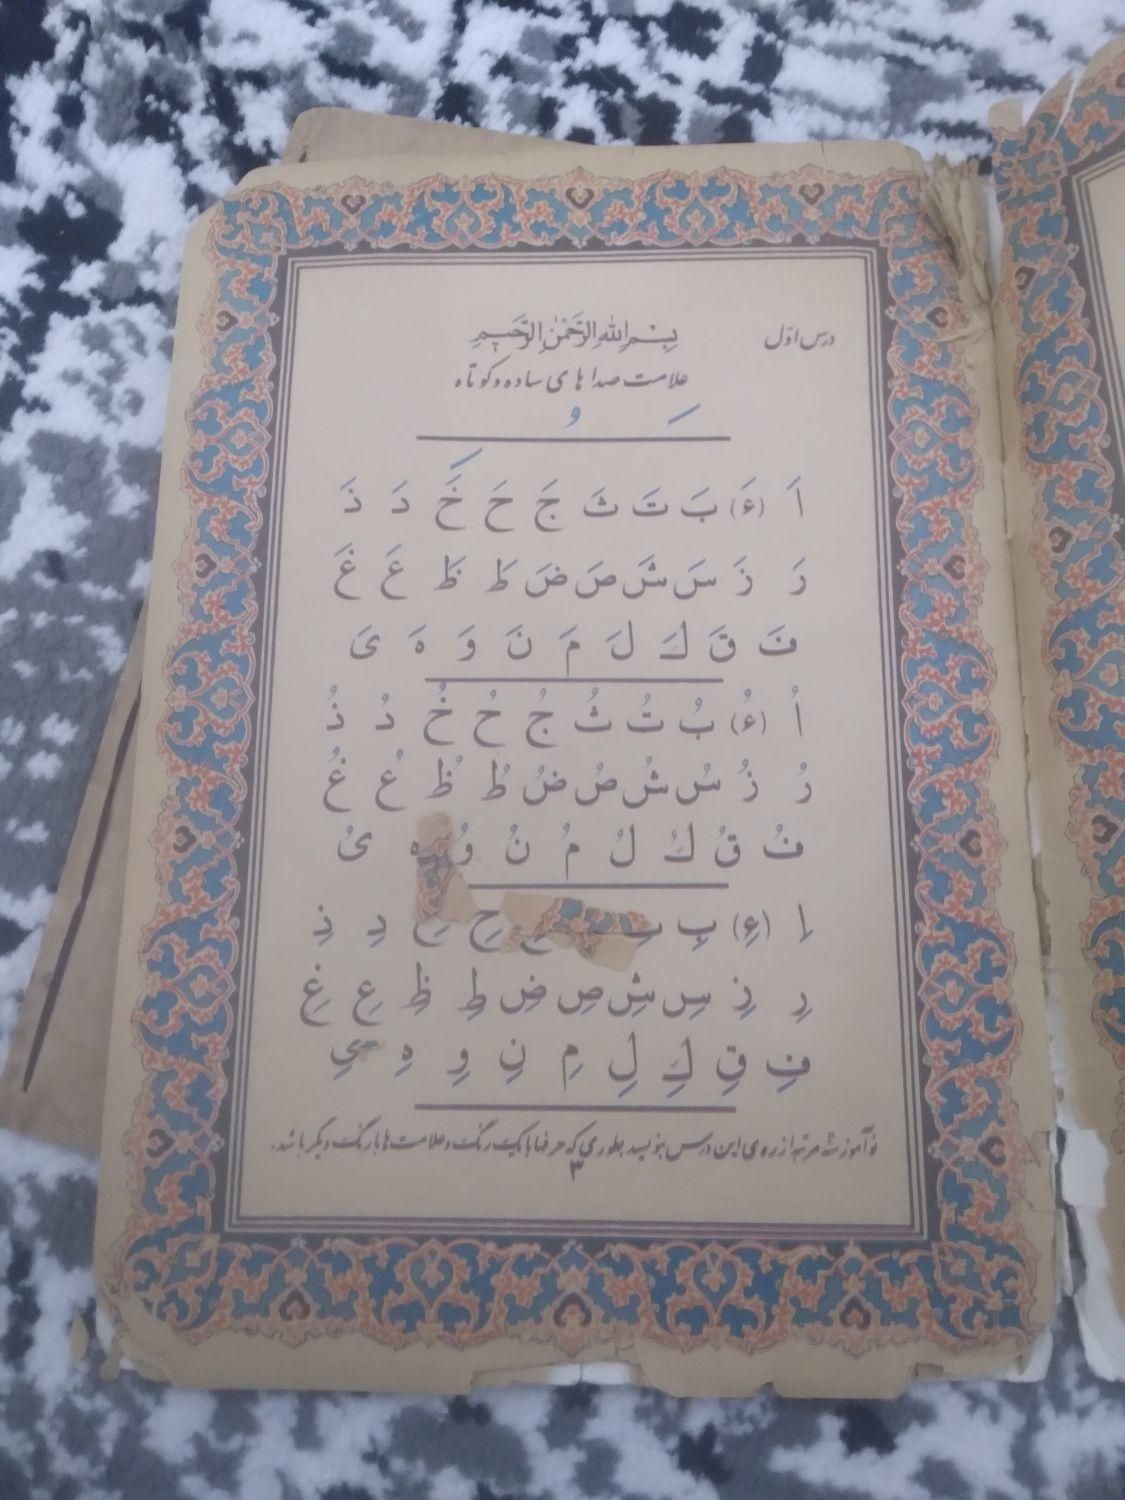 درس اوّل
بِسْمِ اللهِ الرَّحْمٰنِ الرَّحِيمِ
علامت صداهای ساده و کوتاه
َ ُ ِ
اَ (ءَ) بَ تَ ثَ جَ حَ خَ دَ ذَ
رَ زَ سَ شَ صَ ضَ طَ ظَ عَ غَ
فَ قَ كَ لَ مَ نَ وَ هَ ىَ
اُ (ءُ) بُ تُ ثُ جُ حُ خُ دُ ذُ
رُ زُ سُ شُ صُ ضُ طُ ظُ عُ غُ
فُ قُ كُ لُ مُ نُ وُ ه ىُ
اِ (ءِ) بِ حِ خِ دِ ذِ
رِ زِ سِ شِ صِ ضِ طِ ظِ عِ غِ
فِ قِ كِ لِ مِ نِ وِ هِ ىِ
نوآموز سه مرتبه از روی این درس بنویسد بطوری که حرفها با یک رنگ و علامت ها با رنگ دیگر باشد.
۳